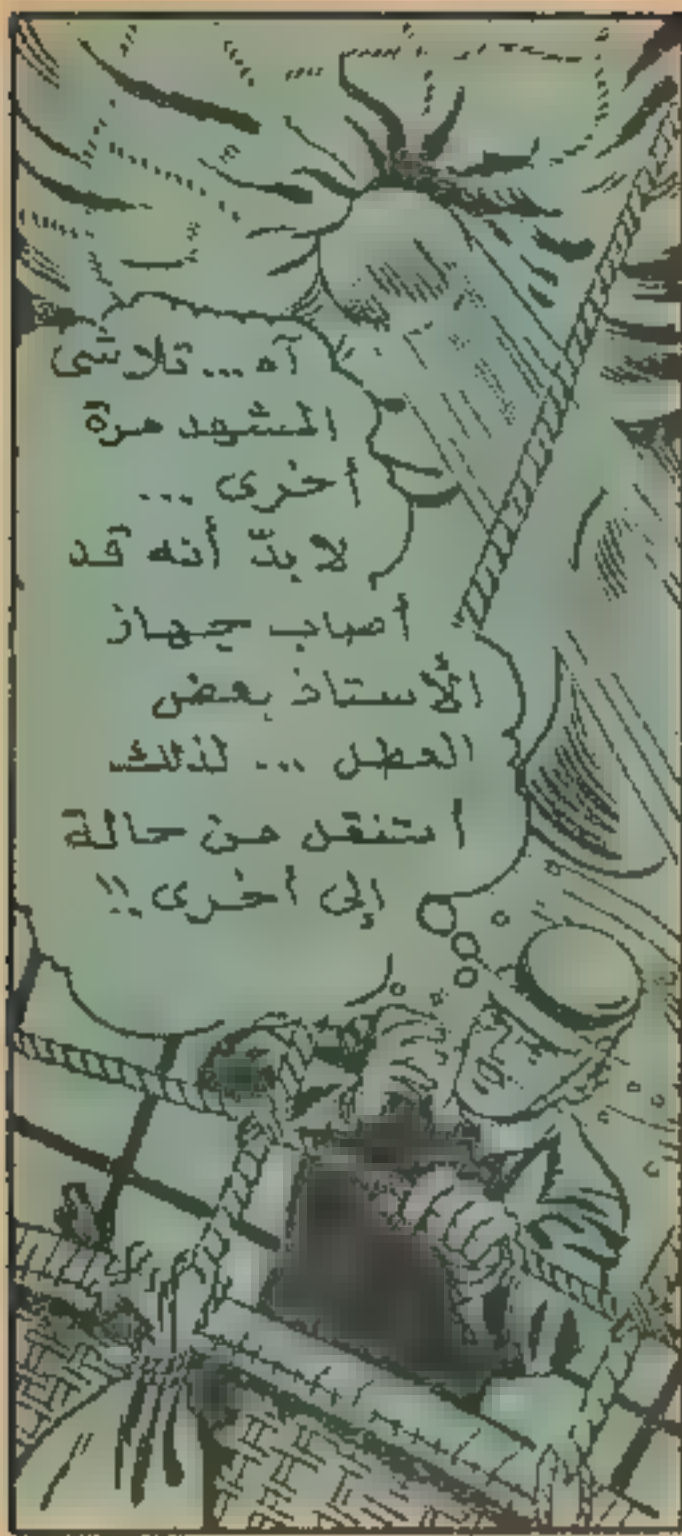 آه... تلاشى
المشهد مرة
أخرى ...
لا بدّ أنه قد
أصاب جهاز
الأستاذ بعض
العطل ... لذلك
أتنقل من حالة
إلى أخرى !!